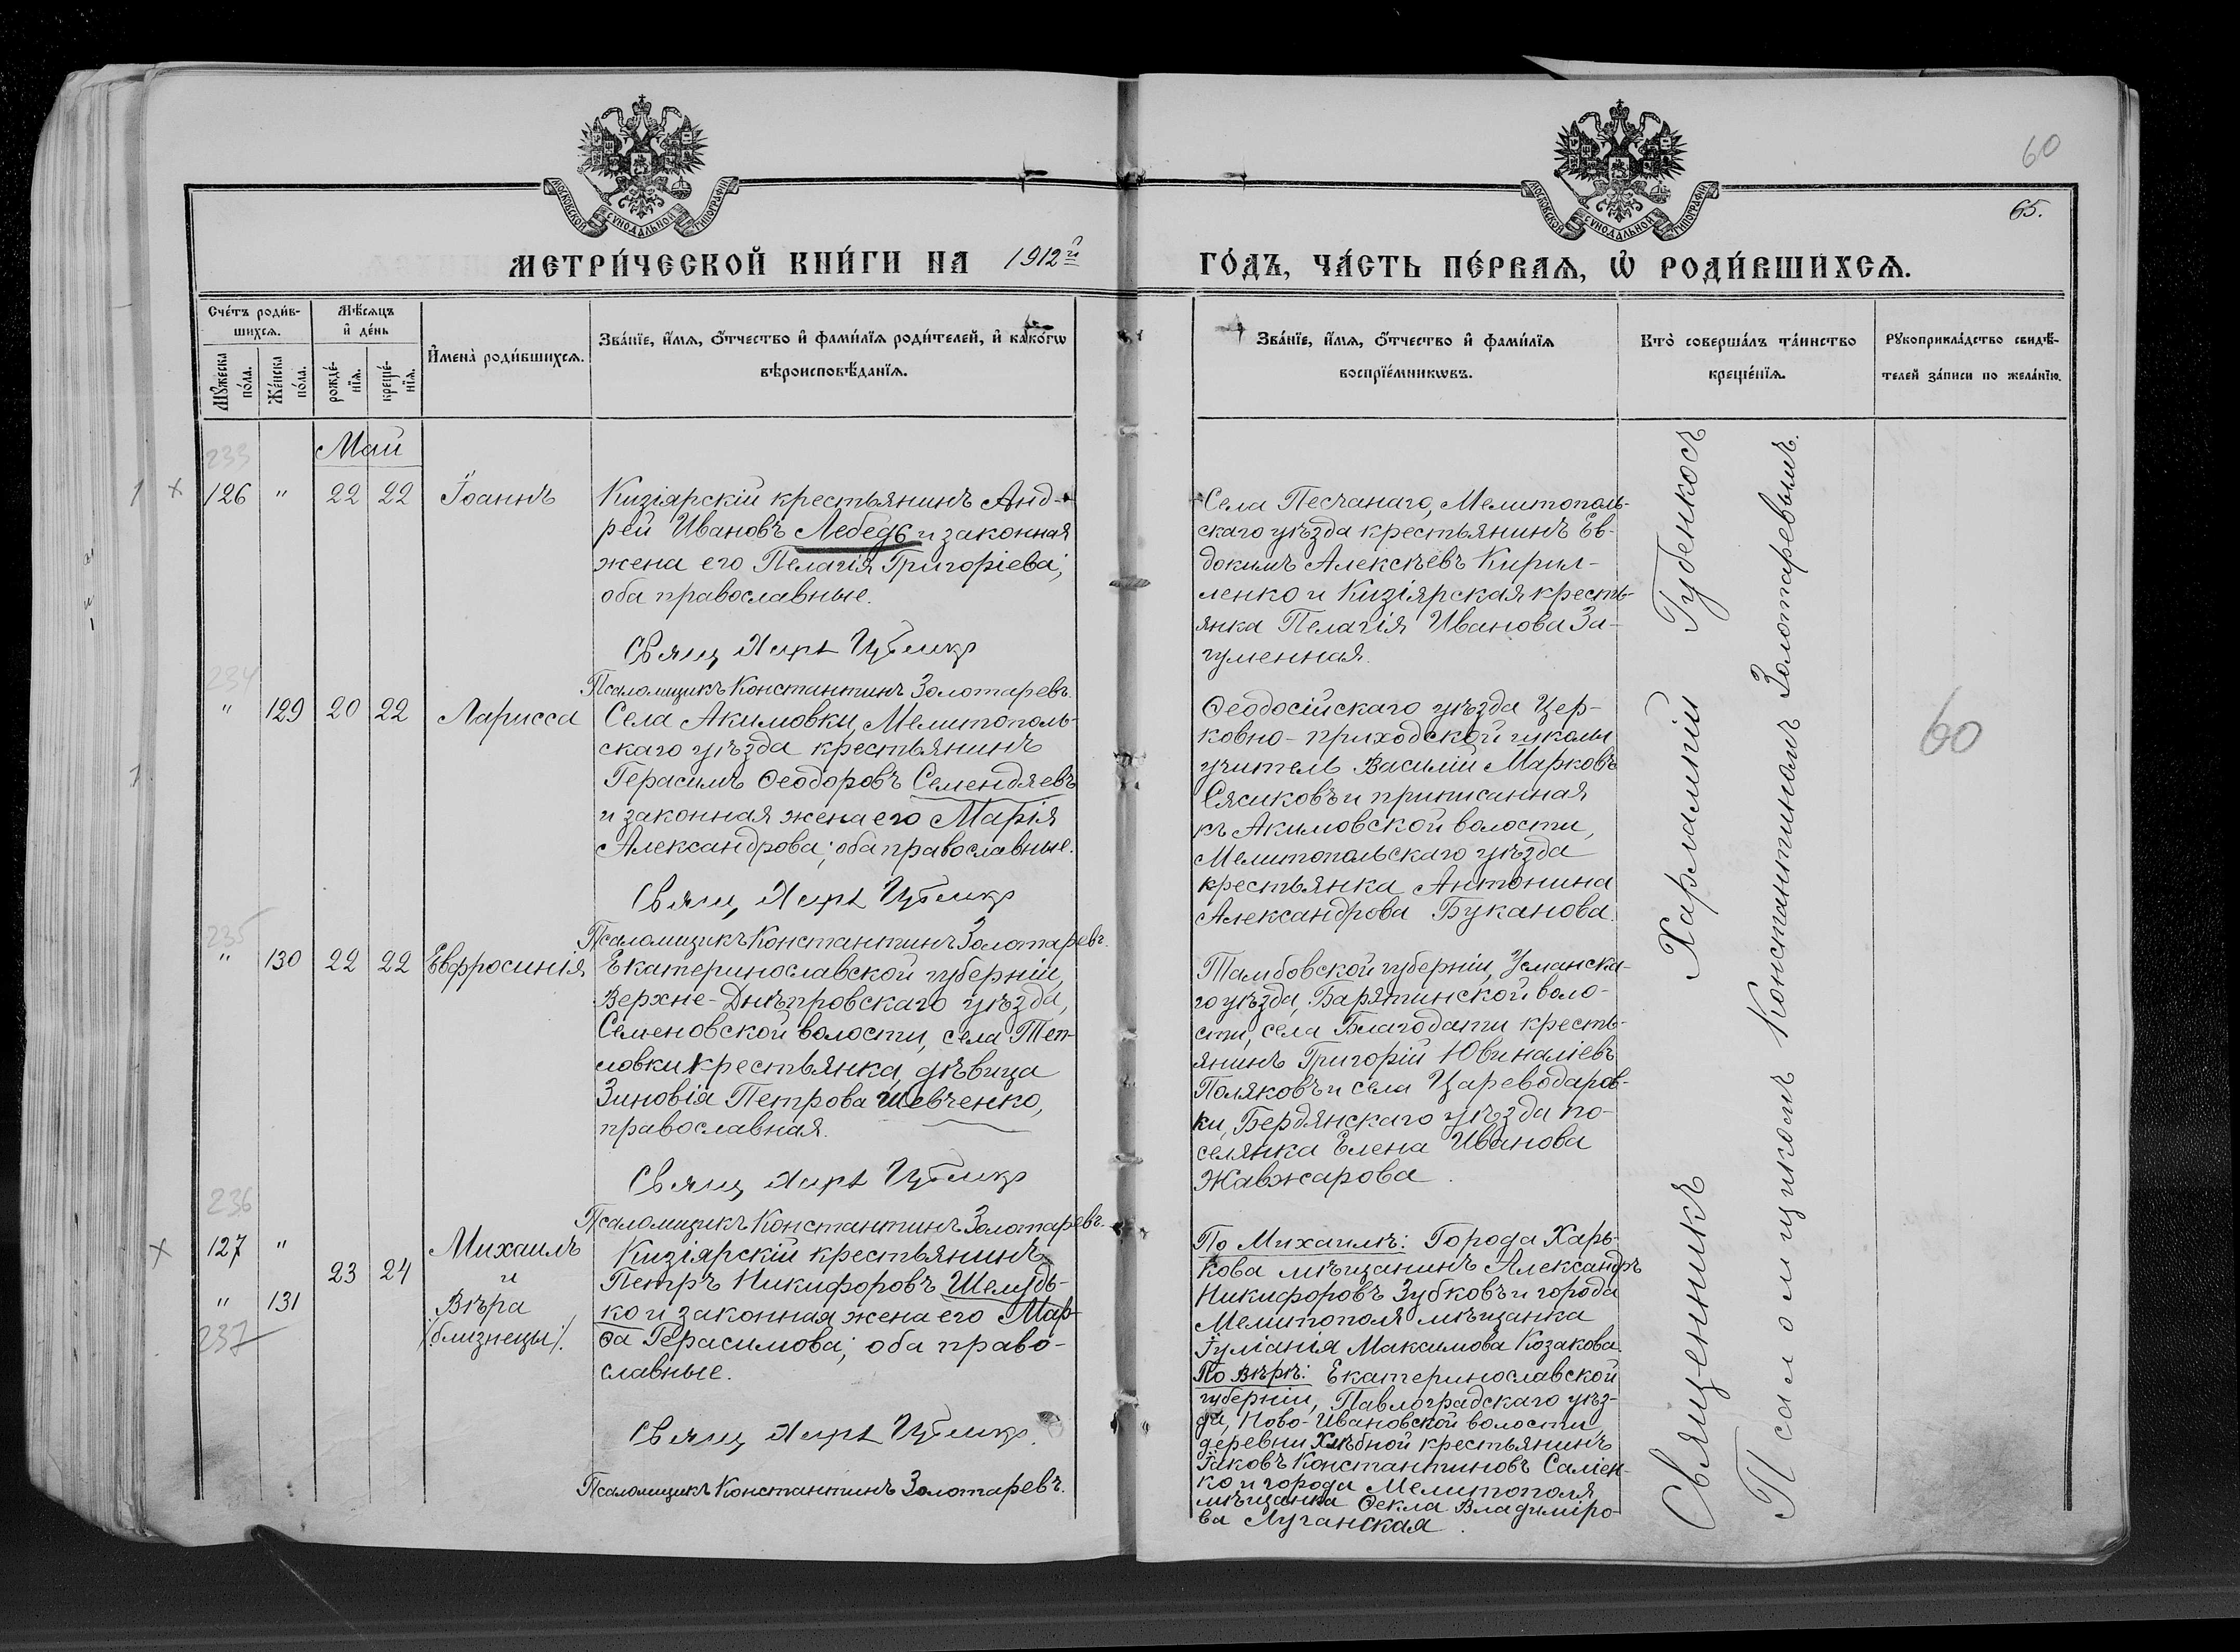 60
65.
МОСКОВСКОЙ СѴНОДАЛЬНОЙ ТИПОГРАФІИ
МОСКОВСКОЙ СѴНОДАЛЬНОЙ ТИПОГРАФІИ
МЕТРИ́ЧЕСКОЙ КНИ́ГИ НА 1912й
ГО́ДЪ, ЧА́СТЬ ПЕ́РВАѦ, Ѽ РОДИ́ВШИХСѦ.
Сче́тъ роди́в-
шихсѧ.
Мꙋ́жеска по́ла.
Же́нска по́ла.
Мѣ́сѧцъ
и҆ де́нь
рожде́-
нїѧ.
креще́-
нїѧ.
И҆мена̀ роди́вшихсѧ.
Зва́нїе, и҆́мѧ, ѻ҆́тчество и҆ фами́лїѧ роди́телей, и҆ како́гѡ
вѣроисповѣ́данїѧ.
Зва́нїе, и҆́мѧ, ѻ҆́тчество и҆ фами́лїѧ
воспрїе́мникѡвъ.
Кто̀ соверша́лъ та́инство
креще́нїѧ.
Рꙋкоприкла́дство свидѣ́-
телей за́писи по жела́нїю.
Май
233
126 " 22 22 Іоаннъ
Кизіярскій крестьянинъ Анд-
рей Ивановъ Лебедь и законная
жена его Пелагія Григоріева;
оба православные.
Свящ Харл Губенко
Псаломщикъ Константинъ Золотаревъ.
Села Песчанаго, Мелитополь-
скаго уѣзда крестьянинъ Ев-
докимъ Алексѣевъ Кирил-
ленко и Кизіярская кресть-
янка Пелагія Иванова За-
гуменная.
234
" 129 20 22 Ларисса
Села Акимовки, Мелитополь-
скаго уѣзда крестьянинъ
Герасимъ Ѳеодоровъ Семендяевъ
и законная жена его Марія
Александрова; оба православные.
Свящ Харл Губенко
Псаломщикъ Константинъ Золотаревъ.
Ѳеодосійскаго уѣзда Цер-
ковно-приходской школы
учитель Василій Марковъ
Сясиковъ и приписанная
къ Акимовской волости,
Мелитопольскаго уѣзда
крестьянка Антонина
Александрова Буканова.
60
235
" 130 22 22 Евфросинія
Екатеринославской губерніи,
Верхне-Днѣпровскаго уѣзда,
Семеновской волости, села Теп-
ловки крестьянка, дѣвица
Зиновія Петрова Шевченко,
православная.
Свящ Харл Губенко
Псаломщикъ Константинъ Золотаревъ.
Тамбовской губерніи, Усманска-
го уѣзда, Барятинской воло-
сти, села Благодати кресть-
янинъ Григорій Ювиналіевъ
Поляковъ и села Цареводаров-
ки, Бердянскаго уѣзда по-
селянка Елена Иванова
Жавжарова.
236
127 "
23 24
" 131
237
Михаилъ
и
Вѣра
/близнецы/.
Кизіярскій крестьянинъ
Петръ Никифоровъ Шелудь-
ко и законная жена его Мар-
ѳа Герасимова; оба право-
славные.
Свящ Харл Губенко.
Псаломщикъ Константинъ Золотаревъ.
По Михаилѣ: Города Харь-
кова мѣщанинъ Александръ
Никифоровъ Зубковъ и города
Мелитополя мѣщанка
Іуліанія Максимова Козакова.
По Вѣрѣ: Екатеринославской
губерніи, Павлоградскаго уѣз-
да, Ново-Ивановской волости
деревни Хлѣбной крестьянинъ
Іаковъ Константиновъ Саліен-
ко и города Мелитополя
мѣщанка Ѳекла Владиміро-
ва Луганская.
Священникъ Харлампій Губенкосъ
Псаломщикомъ Константиномъ Золотаревымъ.